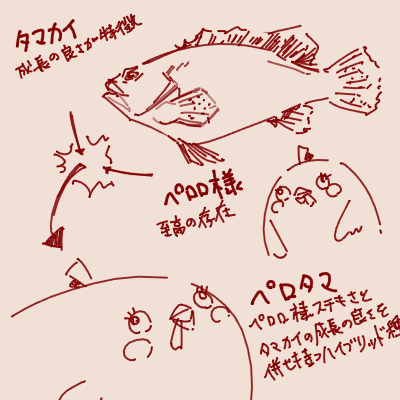 タマカイ
成長の良さが特徴
ペロロ様
至高の存在
ペロタマ
ペロロ様のステキさと
タマカイの成長の良さを
併せ持つハイブリッド種